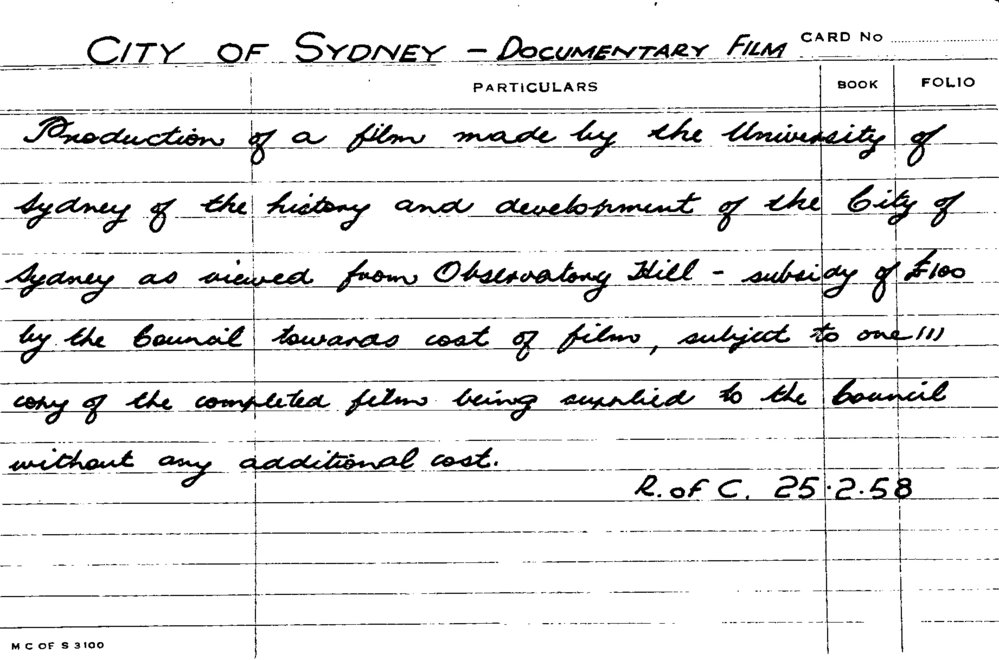 CITY OF SYDNEY – DOCUMENTARY FILM CARD No
PARTICULARS BOOK FOLIO
Production of a film made by the University of
Sydney of the history and development of the City of
Sydney as viewed from Observatory Hill – subsidy of £100
by the Council towards cost of film, subject to one (1)
copy of the completed film being supplied to the Council
without any additional cost.
R. of C. 25.2.58
M C OF S 3100